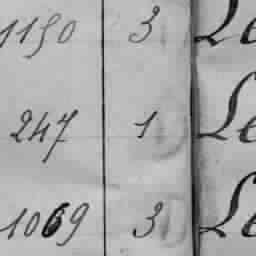 1150 3 Le
247 1 Le
1069 3 Le